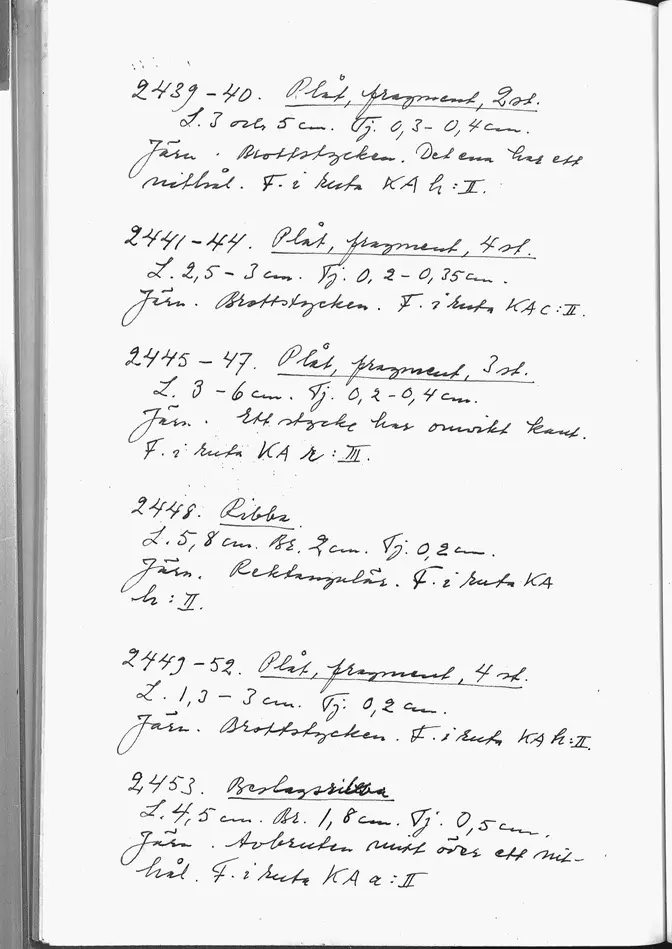 2439-40. Plåt, fragment, 2 st.
L. 3 och 5 cm. Tj. 0,3-0,4 cm.
Järn. Brottstycken. Det ena har ett
nithål. F. i ruta KA h:II.
2441-44. Plåt, fragment, 4 st.
L. 2,5-3 cm. Tj. 0,2-0,35 cm.
Järn. Brottstycken. F. i ruta KA c:II.
2445-47. Plåt, fragment, 3 st.
L. 3-6 cm. Tj. 0,2-0,4 cm.
Järn. Ett stycke har omvikt kant.
F. i ruta KA r:III.
2448. Ribba
L. 5,8 cm. Br. 2 cm. Tj. 0,2 cm.
Järn. Rektangulär. F. i ruta KA
h:II.
2449-52. Plåt, fragment, 4 st.
L. 1,3-3 cm. Tj. 0,2 cm.
Järn. Brottstycken. F. i ruta KA h:II.
2453. Beslagsribba
L. 4,5 cm. Br. 1,8 cm. Tj. 0,5 cm.
Järn. Avbruten mitt över ett nit-
hål. F. i ruta KA a:II